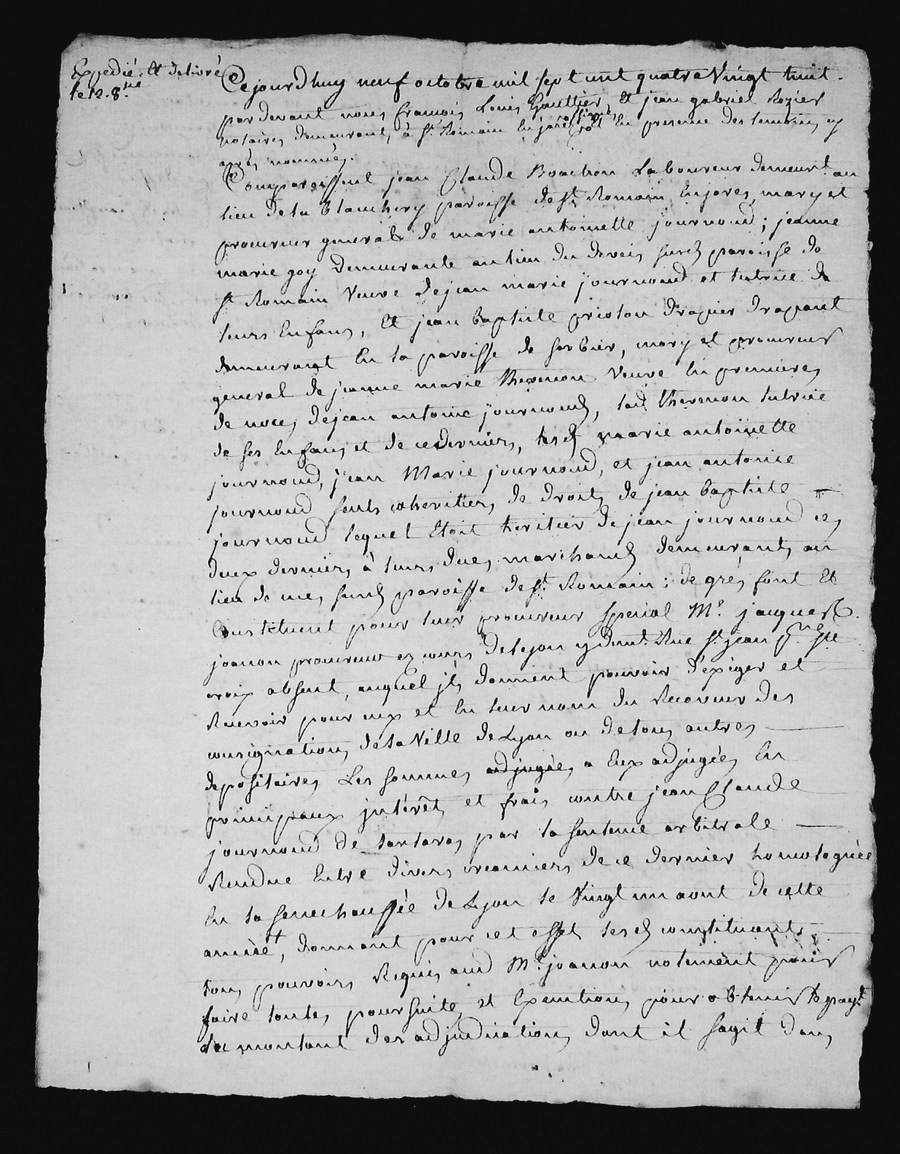 Expedié et delivré
le 12. 8.bre
Cejourdhuy neuf octobre mil sept cent quatre vingt huit.
pardevant nous françois Louis Gaultier, et jean gabriel Rozier
notaires demeurant, à St Romain En jarest, En presence des temoins cy
après nommés.
Comparoissent jean Claude Laboureur demeurt au
lieu de la blanchery paroisse de St Romain Enjares, mary et
procureur general de marie antoinette journoud; jeanne
marie goy demeurante au lieu du devais susd paroisse de
St Romain veuve de jean marie journoud et tutrice de
leurs Enfans, Et jean baptiste prioton drapier drapant
demeurant En la paroisse de sorbier, mary et procureur
general de jeanne marie thevenon veuve En premieres
de noces de jean antoine journoud, lad thevenon tutrice
de ses Enfans et de cedernier, lesd marie antoinette
journoud, jean Marie journoud, et jean antonie
journoud seuls coheritiers de droit de jean baptiste
journoud lequel Etoit heritier de jean journoud ces
deux derniers à leurs deces marchands demeurants au
lieu de susd paroisse de St Romain: de grés font Et
Constituent pour leur procureur special Mr. jacques
joanon procureur ez cours de lyon y demt Rue St jean psse Ste
croix absent, auquel jls donnent pouvoir d'exiger et
Recevoir pour eux et En leur nom du Receveur des
consignations de la ville de Lyon ou de tous autres
depositaires Les sommes adjugées a Eux adjugées En
principaux jnterêt et frais contre jean Claude
journoud de tartaras par la sentence arbitrale
Rendue Entre divers creanciers de ce dernier homologuée
En la senechaussée de Lyon le vingt un aout de cette
année, donnant pour cet effet lesd constituants
tous pouvoirs Requis aud Mr. joanon notament pour
faire toutes poursuites et Execution pour obtenir le payt
du montant des adjudications dont il sagit dans